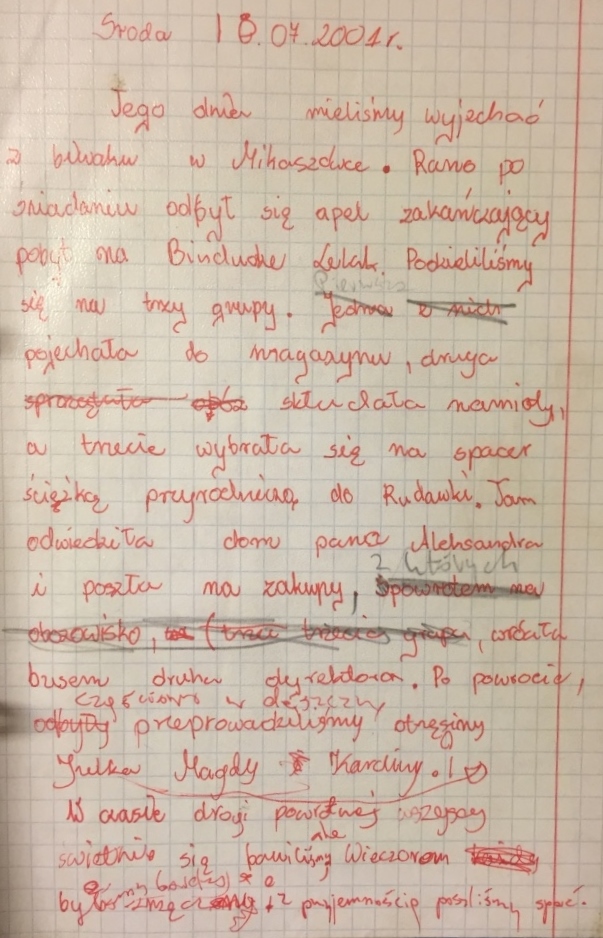 Środa 18.07.2001r.
Tego dnia mieliśmy wyjechać
z biwaku w Mikaszówce. Rano po
śniadaniu odbył się apel zakańczający
pobyt na Binduche Lelak. Podzieliliśmy
Pierwsza
się na trzy grupy. Jedna z nich
pojechała do magazynu, druga
sprzątała składała namioty,
a trzecia wybrała się na spacer
ścieżką przyrodniczą do Rudawki. Tam
odwiedziła dom pana Aleksandra
z których
i poszła na zakupy, spowrotem na
obozowisko, (trza trzecia grupa, wróciła
busem druha dyrektora. Po powrocie,
częściowo w deszczu,
odbyły przeprowadziliśmy otrzęsiny
Julka Magdy i Karoliny.
W czasie drogi powrotnej wszyscy
ale
świetnie się bawiliśmy Wieczorem
bardzo
z przyjemnością poszliśmy spać.